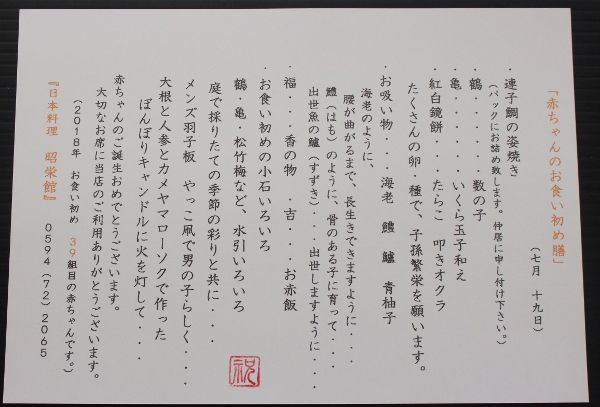 「赤ちゃんのお食い初め膳」
(七月 十九日)
・連子鯛の姿焼き
(パックにお詰め致します。仲居に申し付け下さい。)
・鶴・・・・・・数の子
・亀・・・・・・いくら玉子和え
・紅白鏡餅・・・たらこ 叩きオクラ
たくさんの卵・種で、子孫繁栄を願います。
・お吸い物・・・海老 鱧 鱸 青柚子
海老のように、
腰が曲がるまで、長生きできますように・・・
鱧(はも)のように、骨のある子に育って・・・
出世魚の鱸(すずき)・・・出世しますように・・・
・福・・・香の物 ・吉・・・お赤飯
・お食い初めの小石いろいろ
鶴・亀・松竹梅など、水引いろいろ
庭で採りたての季節の彩りと共に・・・
メンズ羽子板 やっこ凧で男の子らしく・・・
大根と人参とカメヤマローソクで作った
ぼんぼりキャンドルに火を灯して・・・
赤ちゃんのご誕生おめでとうございます。
大切なお席に当店のご利用ありがとうございます。
(2018年 お食い初め 39組目の赤ちゃんです。)
『日本料理 昭栄館』 0594(72)2065
祝